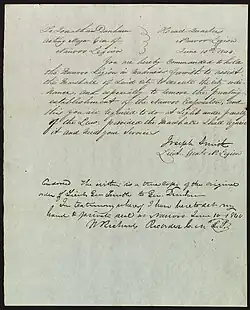 To Jonathan Dunham
Acting Major Gen. of
Nauvoo Legion
Head Quarters
Nauvoo Legion
June 10th 1844
You are hereby Commanded to hold
the Nauvoo Legion in readiness forthwith to assist
the Marshal of said City
and especially to remove the printing
establishment of the Nauvoo Expositor, and
this you are required to do at Sight under penalty
of the Law, provided the Marshal Shall require
it and need your Services
Joseph Smith
Lieut. Genl. N. Legion
The within is a true copy of the original
order of Lieut. Gen. Smith to Gen. Dunham
In testimony whereof I have hereto set my
hand & private seal at Nauvoo June 10, 1844
W Richards Recorder